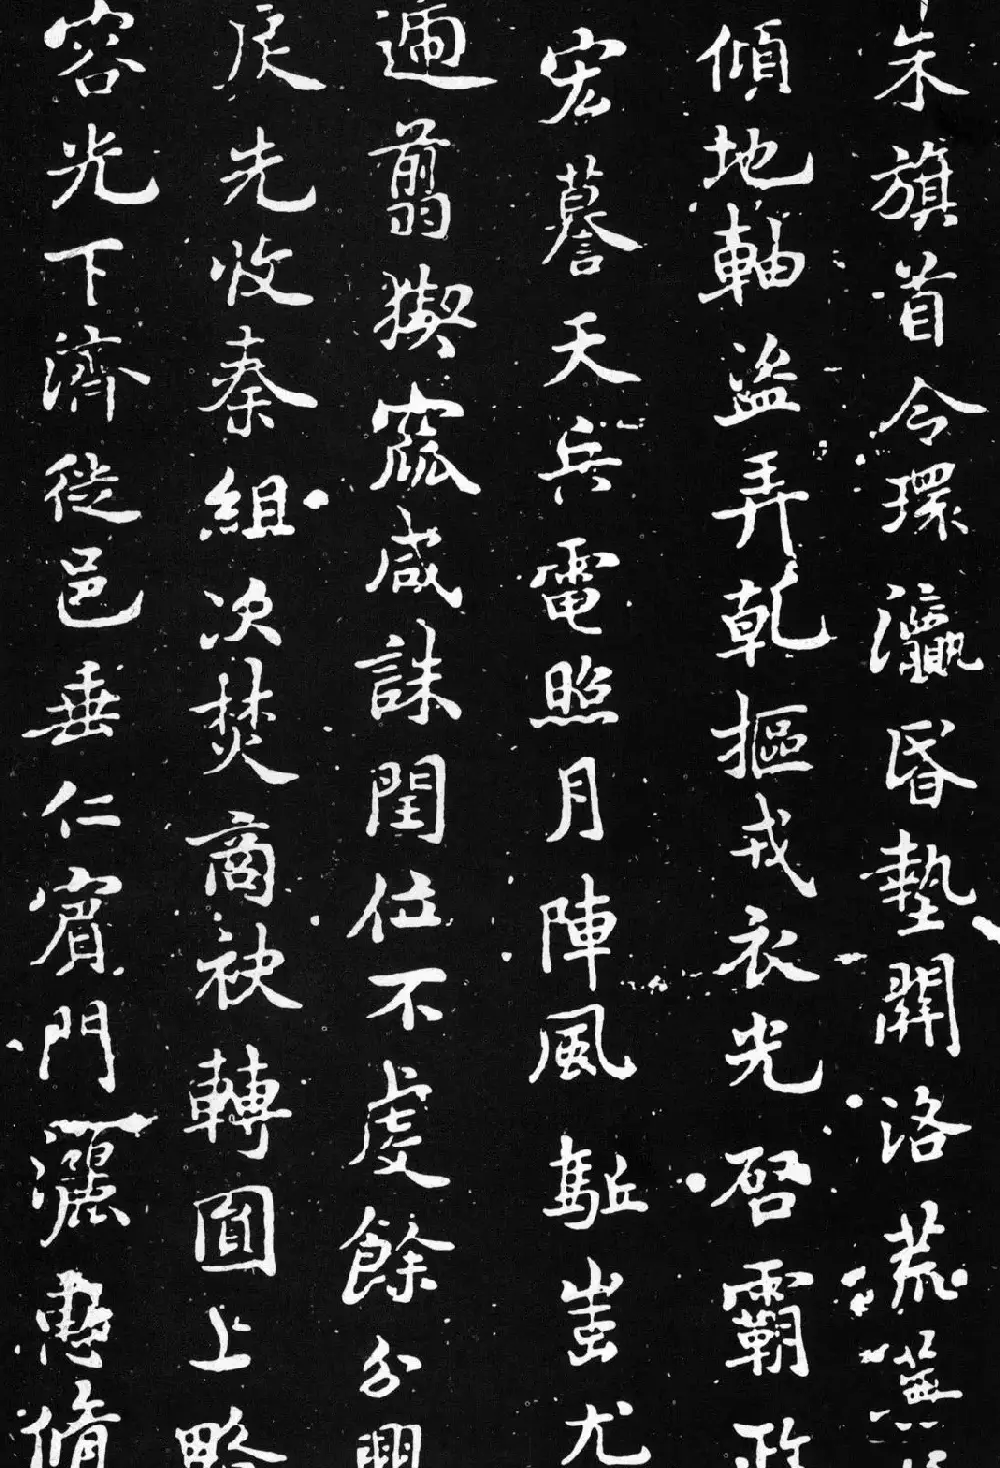 朱旗首令環瀛昏墊關洛荒蕪
傾地軸盜弄乾摳戎衣光啓霸政
宏謩天兵電照月陣風駈蚩尤
逋翦猰窳咸誅閏位不虔餘分
戾先收秦組次焚商袂轉圓上略
容光下濟徙邑垂仁賓門灑惠脩